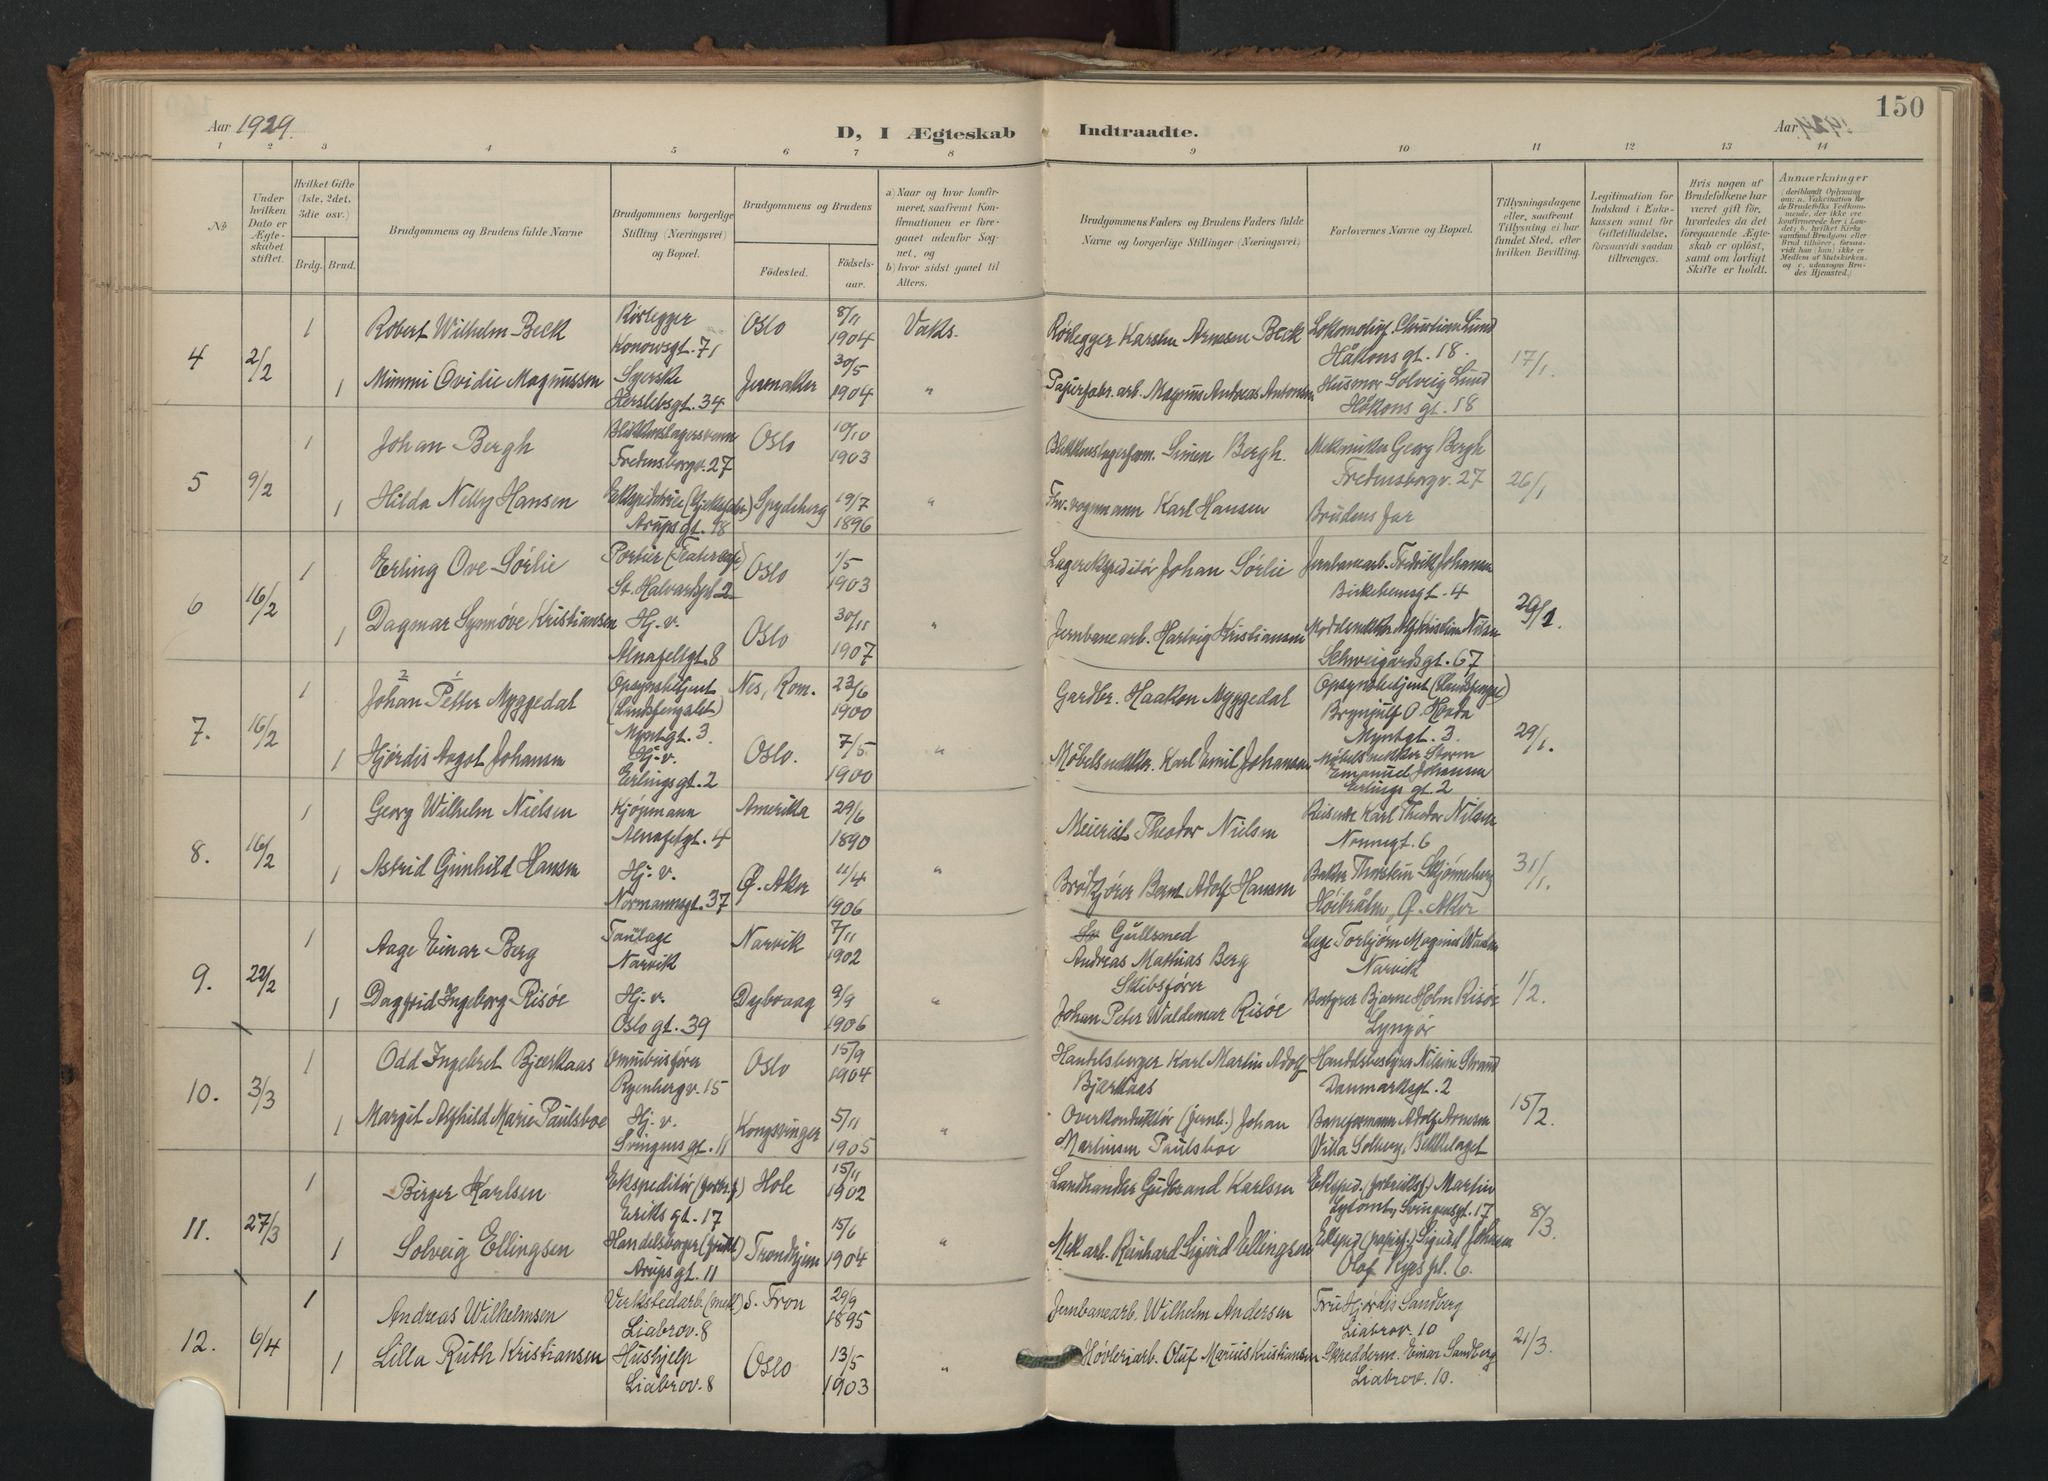 150
Aar 1929.
D, I Ægteskab Indtraadte.
Aar 1929.
1 2 3 4 5 6 7 8 9 10 11 12 13 14
No
Under hvilken Dato er Ægteskabet stiftet.
Hvilket Gifte (1ste, 2det, 3die osv.)
Brdg. Brud.
Brudgommens og Brudens fulde Navne
Brudgommens borgerlige Stilling (Næringsvei) og Bopæl.
Brudgommens og Brudens
Födested.
Födselsaar.
a) Naar og hvor konfirmeret, saafremt Konfirmationen er foregaaet udenfor Sognet, og
b) hvor sidst gaaet til Alters.
Brudgommens Faders og Brudens Faders fulde Navne og borgerlige Stillinger (Næringsvei)
Forlovernes Navne og Bopæl.
Tillysningsdagene eller, saafremt Tillysning ei har fundet Sted, efter hvilken Bevilling.
Legitimation for Indskud i Enkekassen samt for Giftetilladelse, forsaavidt saadan tiltrænges.
Hvis nogen af Brudefolkene har været gift för, hvorledes da det foregaaende Ægteskab er oplöst, samt om lovligt Skifte er holdt.
Anmærkninger
4 2/2
1 Robert Wilhelm Beck Rørlegger Konowsgt. 71 Oslo 8/11 1904 Vaks. Rørlegger Karsten Arnesen Beck Lokomotivf. Christian Lund Håkons gt. 18. 17/1.
1 Mimmi Ovidie Magnussen Syerske Herslebsgt. 34 Jevnaker 30/5 1904 " Papirfabr. arb. Magnus Andreas Antonsen Husmor Solveig Lund Håkons gt. 18
5 9/2
1 Johan Bergh Blikkenslagersvenn Fredensborgv. 27 Oslo 10/10 1903 Blikkenslagerfom. Simen Bergh. Mekaniker Georg Bergh Fredensborgv. 27 26/1
1 Hilda Nelly Hansen Arups gt. 18 Spydeberg 19/7 1896 " Fhv. vognmann Karl Hansen Brudens far
6 16/2
1 Erling Ove Sørlie Portier St. Halvardsgt. 2 Oslo 1/5 1903 Lagerekspeditør Johan Sørlie Jernbanearb. Fredrik Johansen Birkebeinsgt. 4 29/1.
1 Dagmar Synnøve Kristiansen Hj. v. Alnafetgt. 8 Oslo 30/11 1907 " Jernbanearb. Hartvig Kristiansen Schweigårdsgt. 67
7. 16/2
2 1
1 Johan Petter Myggedal Opsynsbetjent (Landsfengslet) Myntgt. 3. Nes, Rom. 23/6 1900 Gardbr. Haakon Myggedal Opsynsbetjent (Landsfengsl.) Brynjulf O. Honda Myntgt. 3. 29/1.
1 Hjørdis Aagot Johansen Hj. v. Erlingsgt. 2 Oslo. 7/5 1900 " Møbelsnekker. Karl Emil Johansen Møbelsnekker Storm Emanuel Johansen Erlings gt. 2
8. 16/2
1 Georg Wilhelm Nielsen Kjøpmann Alnafetgt. 4 Amerika 29/6 1890 Meierist Theodor Nielsen Reisende Karl Theodor Nilsen Nonnegt. 6 31/1.
1 Astrid Gunhild Hansen Hj. v. Normannsgt. 37 Ø. Aker 11/4 1906 " Brødkjører Bernt Adolf Hansen Baker Thorstein Skjønneberg Høibråten, Ø. Aker
9. 22/2
1 Aage Einar Berg Tannlæge Narvik Narvik 7/11 1902 Gullsmed Andreas Mathias Berg Læge Torbjørn Magnus Narvik 1/2.
1 Dagfrid Ingeborg Risøe Hj. v. Oslo gt. 39 Dybvaag 9/9 1906 " Skibsfører Johan Peter Waldemar Risøe Bestyrer Bjarne Holm Risøe Lyngør
10. 3/3
1 Odd Ingebret Bjærkaas Omnibusfører Ryenbergv. 15 Oslo 15/9 1904 Handelsborger Karl Martin Adolf Bjærkaas Handelsbestyrer Nilsine Strand Danmarksgt. 2 15/2.
1 Margit Alfhild Marie Paulsboe Hj. v. Svingens gt. 11 Kongsvinger 5/11 1905 " Overkonduktør (jernb.) Johan Martinsen Paulsboe Baneformann Adolf Arnesen Villa Solberg, Bekkelaget
11. 27/3
1 Birger Karlsen Ekspeditør Eriks gt. 17 Hole 15/11 1902 Landhandler Gudbrand Karlsen Eksped. Martin Svingensgt. 17 8/3.
1 Solveig Ellingsen Handelsborger (frukt) Arups gt. 11 Trondhjem 15/6 1904 " Mek arb. Reinhard Sigurd Ellingsen Eksped (papirf.) Sigurd Johansen Olaf Ryes pl. 6.
12. 6/4
1 Andreas Wilhelmsen Verkstedarb. (mek) Liabrov. 8 S. Fron 29/9 1895 Jernbanearb. Wilhelm Andersen Fru Hjørdis Sandberg Liabrov. 10 21/3.
1 Lilla Ruth Kristiansen Hushjelp Liabrov. 8 Oslo 13/5 1903 " Høvleriarb. Oluf Marius Kristiansen Skredderm. Einar Sandberg Liabrov. 10.